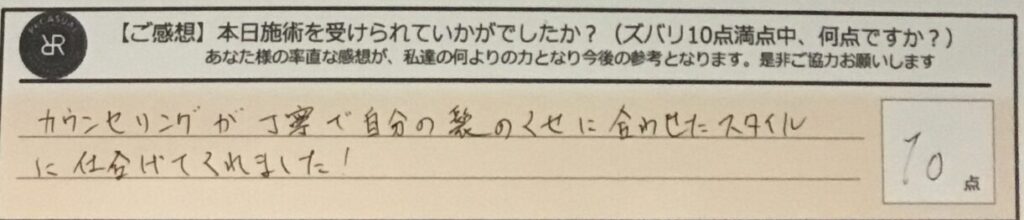 PEGASUS
RR
【ご感想】本日施術を受けられていかがでしたか？（ズバリ10点満点中、何点ですか？）
あなた様の率直な感想が、私達の何よりの力となり今後の参考となります。是非ご協力お願いします
カウンセリングが丁寧で自分の髪のくせに合わせたスタイル
に仕合げてくれました！
10点